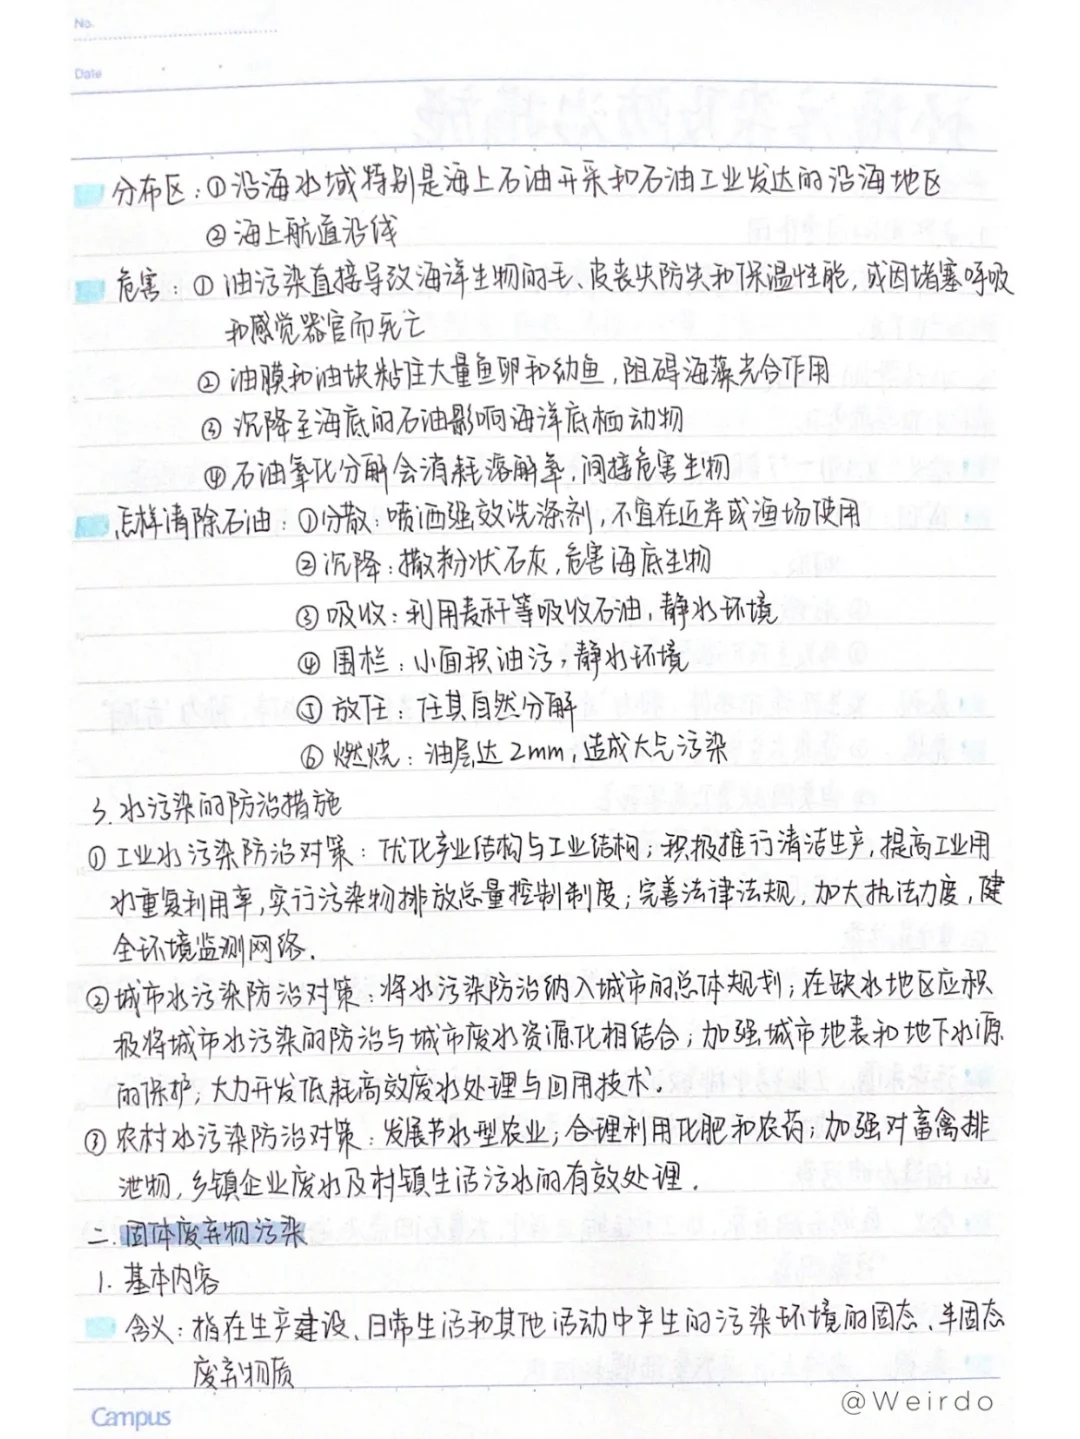 No.
Date
分布区：①沿海水域特别是海上石油开采和石油工业发达的沿海地区
②海上航道沿线
危害：①油污染直接导致海洋生物的毛、皮丧失防失和保温性能，或因堵塞呼吸
和感觉器官而死亡
②油膜和油块粘住大量鱼卵和幼鱼，阻碍海藻光合作用
③沉降至海底的石油影响海洋底栖动物
④石油氧化分解会消耗溶解氧，间接危害生物
怎样清除石油：①分散：喷洒强效洗涤剂，不宜在近岸或渔场使用
②沉降：撒粉状石灰，危害海底生物
③吸收：利用麦秆等吸收石油，静水环境
④围栏：小面积油污，静水环境
⑤放任：任其自然分解
⑥燃烧：油层达2mm，造成大气污染
3.水污染的防治措施
①工业水污染防治对策：优化产业结构与工业结构；积极推行清洁生产，提高工业用
水重复利用率，实行污染物排放总量控制制度；完善法律法规，加大执法力度，健
全环境监测网络.
②城市水污染防治对策：将水污染防治纳入城市的总体规划；在缺水地区应积
极将城市水污染的防治与城市废水资源化相结合；加强城市地表和地下水源
的保护；大力开发低耗高效废水处理与回用技术.
③农村水污染防治对策：发展节水型农业；合理利用化肥和农药；加强对畜禽排
泄物，乡镇企业废水及村镇生活污水的有效处理.
二.固体废弃物污染
1.基本内容
含义：指在生产建设、日常生活和其他活动中产生的污染环境的固态、半固态
废弃物质
Campus
@Weirdo